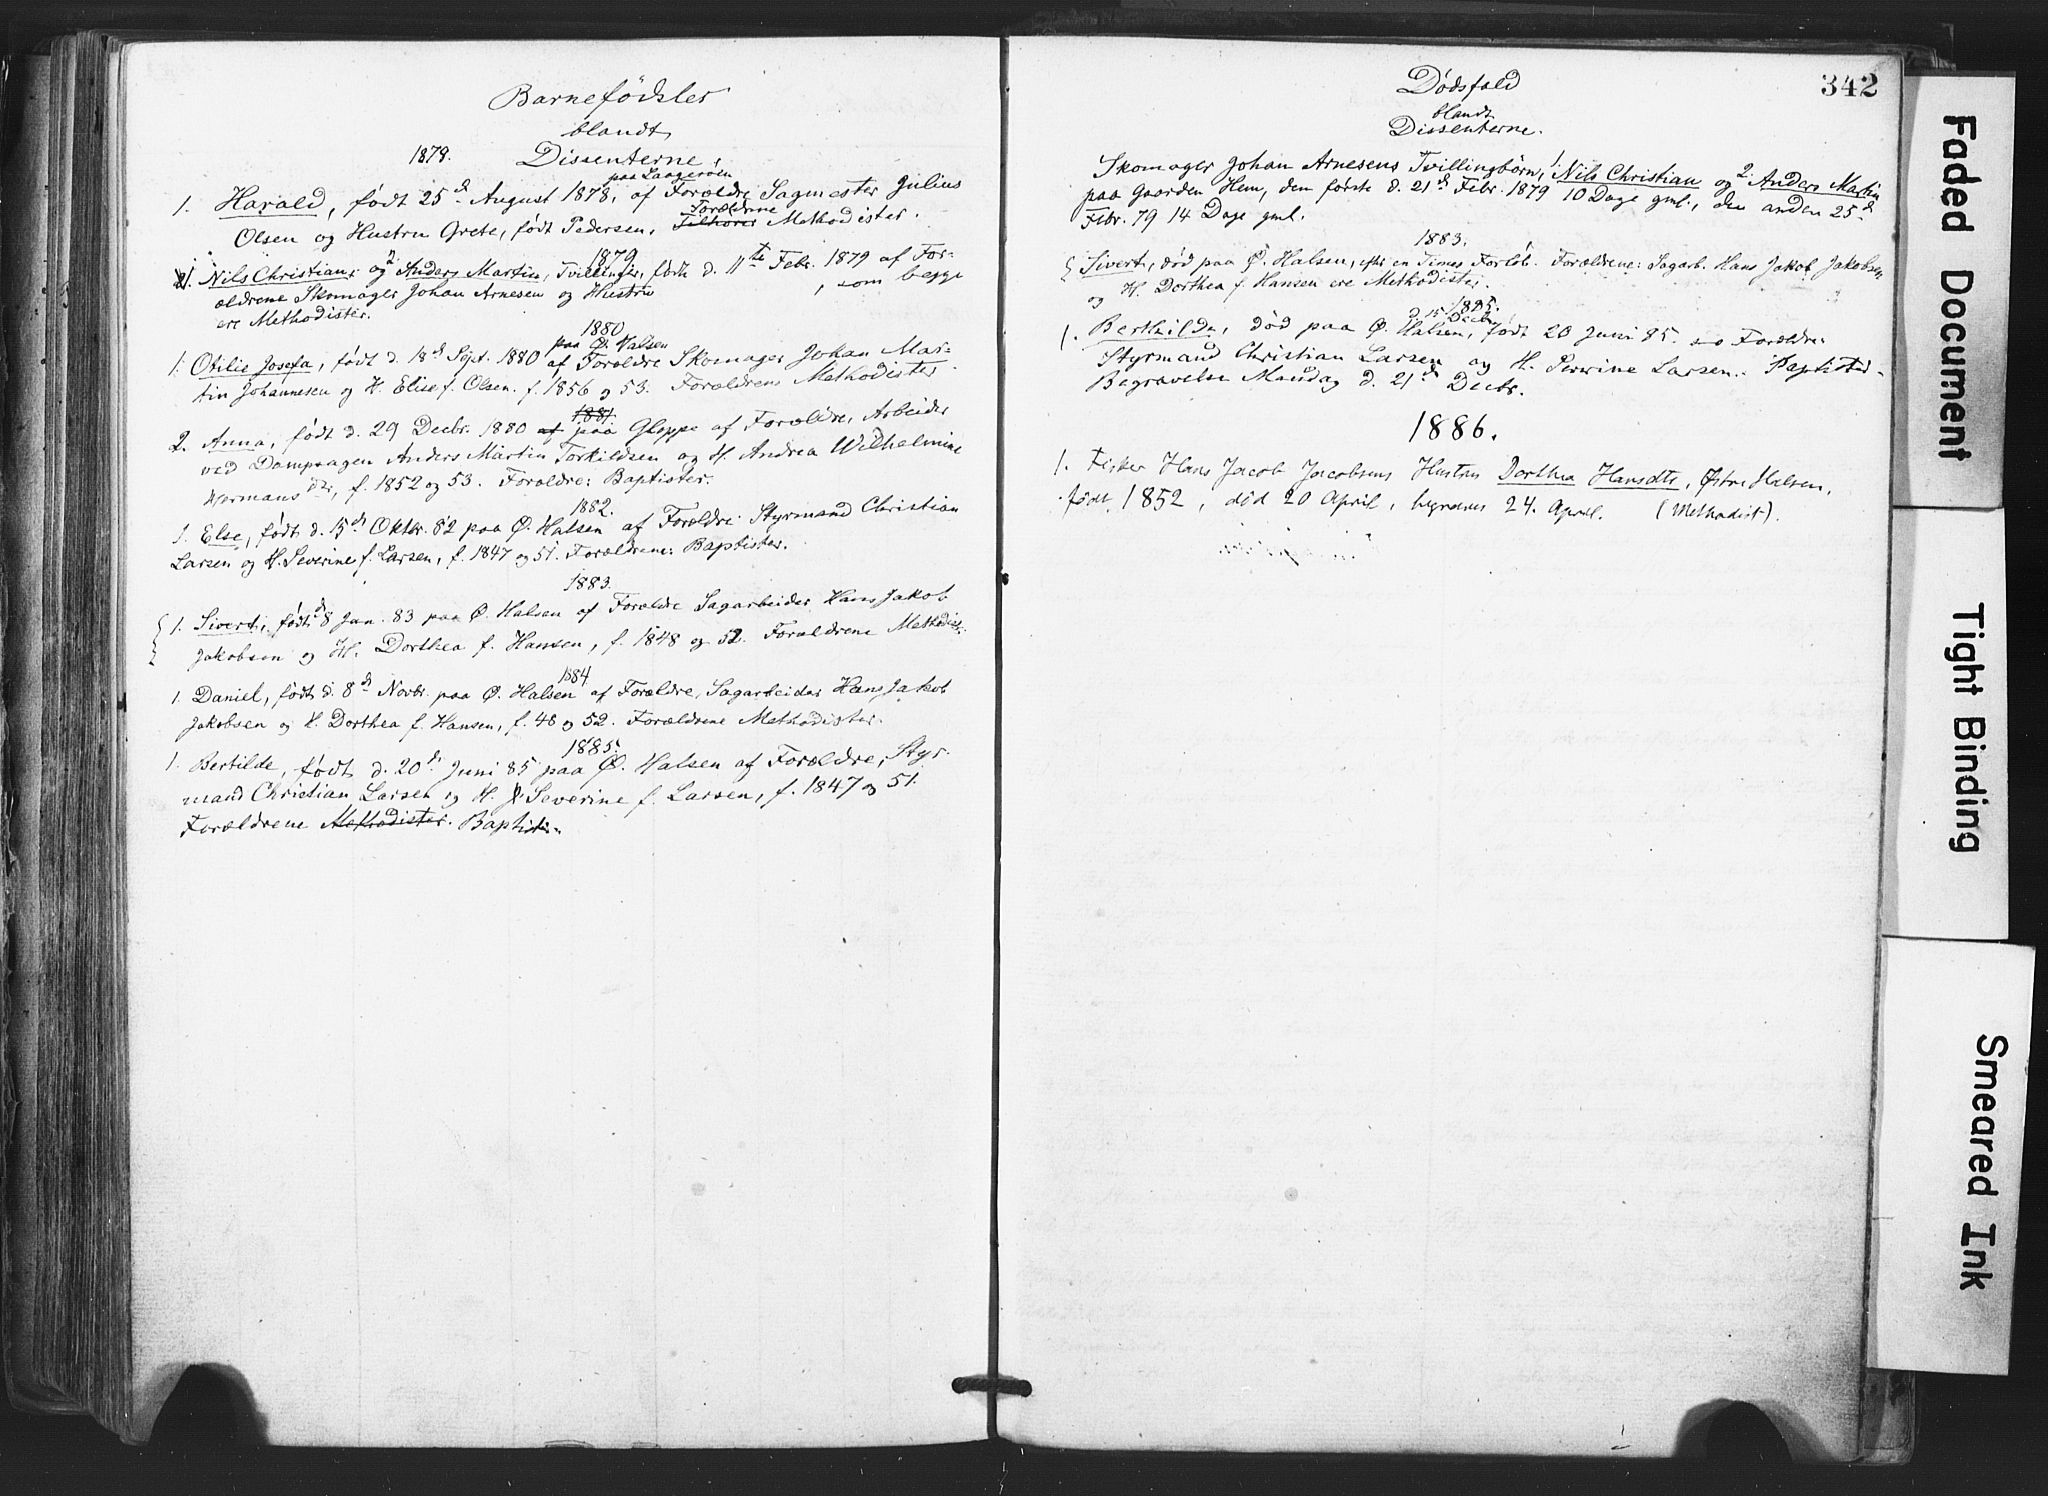 Barnefødsler
blandt
1879. Dissenterne,
paa Laagerøen
1. Harald, født 25d August 1878, af Forældre Sagmester Julius
Forældrene
Olsen og Hustru Grete, født Pedersen, Tilhører Methodister.
1879
1. Nils Christian, og 2. Anders Martin, Tvillinger, født d. 11te Febr. 1879 af For-
ældrene Skomager Johan Arnesen og Hustru , som begge
ere Methodister.
1880
paa Ø. Halsen
1. Otilie Josefa, født d. 18d Sept. 1880 af Forældre Skomager Johan Mar-
tin Johannesen og H. Elise f. Olsen. f. 1856 og 53. Forældrene Methodister.
1881.
2. Anna, født d. 29 Decbr. 1880 af paa Gloppe af Forældre, Arbeider
ved Dampsagen Anders Martin Torkildsen og H. Andrea Wilhelmine
Hermansdtr, f. 1852 og 53. Forældre: Baptister.
1882.
1. Else, født d. 15d Oktbr. 82 paa Ø. Halsen af Forældre: Styrmand Christian
Larsen og H. Severine f. Larsen, f. 1847 og 51. Forældrene: Baptister.
1883.
1. Sivert, født d 8 Jan. 83 paa Ø. Halsen af Forældre Sagarbeider Hans Jakob
Jakobsen og H. Dorthea f. Hansen, f. 1848 og 52. Forældrene Methodist.
1884
1. Daniel, født d. 8d Novbr. paa Ø. Halsen af Forældre, Sagarbeider Hans Jakob
Jakobsen og H. Dorthea f. Hansen, f. 48 og 52. Forældrene Methodister.
1885.
1. Bertilde, født d. 20d Juni 85 paa Ø. Halsen af Forældre, Styr-
mand Christian Larsen og H. Severine f. Larsen, f. 1847 og 51.
Forældrene Methodister. Baptister.
342
Dødsfald
blandt
Dissenterne.
Skomager Johan Arnesens Tvillingbørn, 1. Nils Christian og 2. Anders Martin
paa Gaarden Hem, den første d. 21d Febr. 1879 10 Dage gml., den anden 25d
Febr. 79 14 Dage gml.
1883.
Sivert, død paa Ø. Halsen, efter en Times Forløb. Forældrene: Sagarb. Hans Jakob Jakobsen
og H. Dorthea f. Hansen ere Methodister.
1885.
d. 15 Decbr.
1. Berthilde, død paa Ø. Halsen, født 20 Juni 85. Forældre:
Styrmand Christian Larsen og H. Severine Larsen. Baptister.
Begravelse Mandag d. 21d Decbr.
1886.
1. Fisker Hans Jacob Jacobsens Hustru Dorthea Hansdtr, Østre Halsen,
født 1852, død 20 April, begraves 24. April. (Methodist).
Faded Document
Tight Binding
Smeared Ink